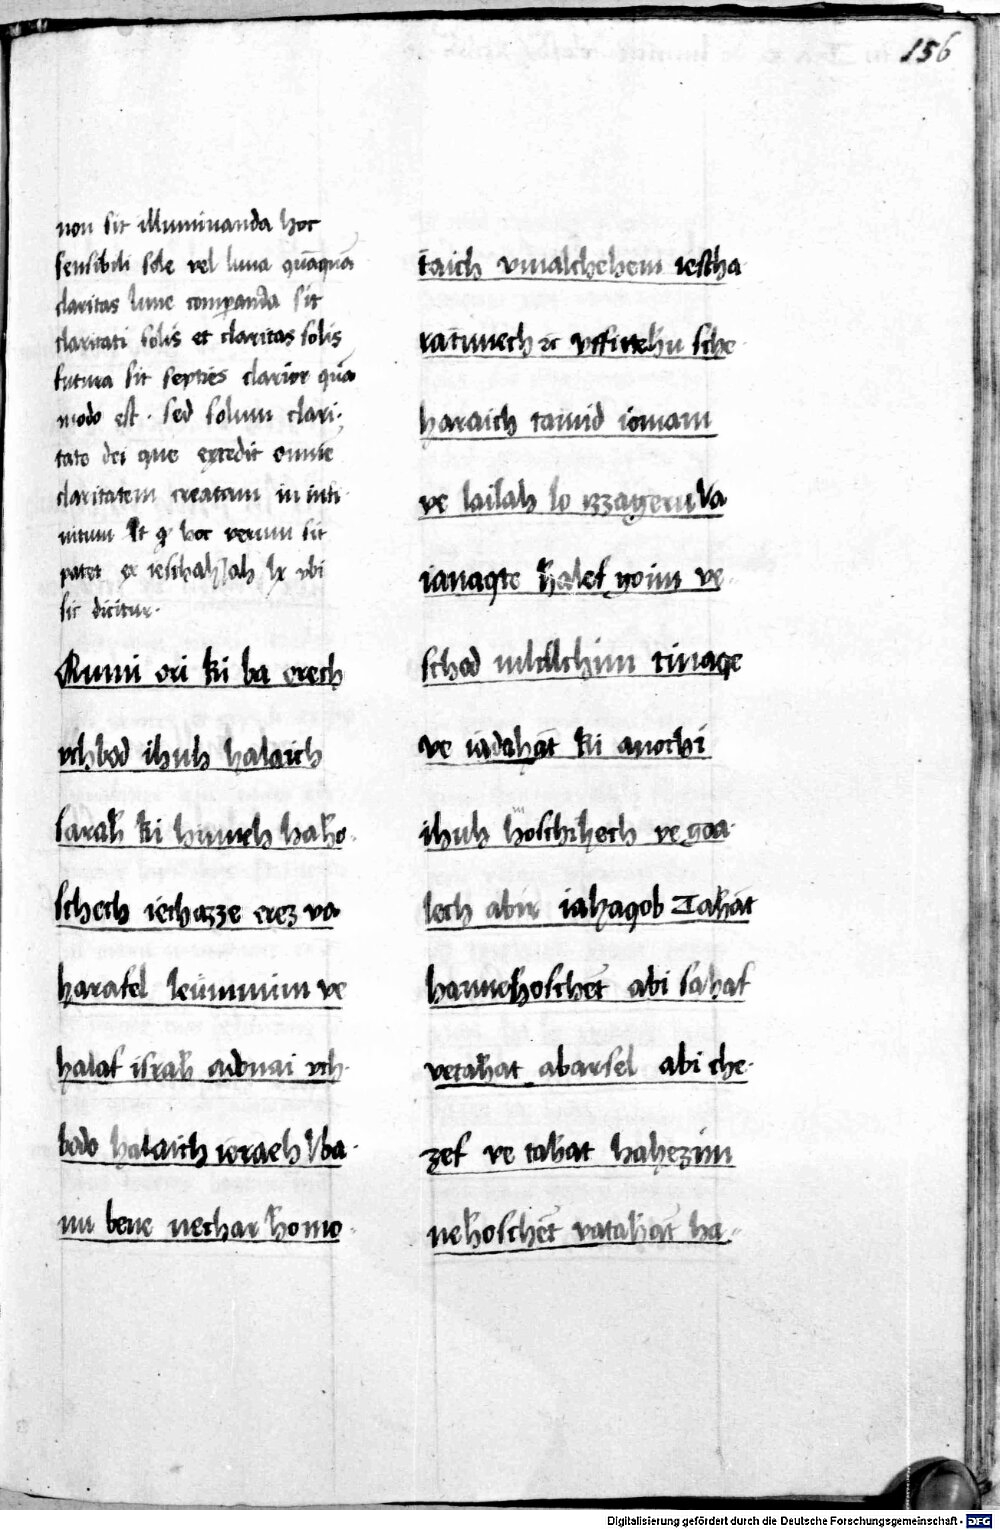 156
non sit illuminanda hoc
sensibili sole vel luna quāquā
claritas lune comparanda sit
claritati solis et claritas solis
futura sit septies clarior quā
modo est · sed solum clari-
tate dei que excedit omnē
claritatem creatam in infi-
nitum Et hoc verum sit
patet ex ieschahJah lx vbi
sic dicitur·
Kumi ori ki ba orech
vchbod ihuh halaich
sarah ki hinneh haho-
schech iechazze erez va
harafel leummim ve
halaf israh adonai vch-
bodo halaich ieraeh Vba-
nu bene nechar homo-
taich vmalchehem iescha-
ratunech ꝛc vffittehu sche-
haraich tamid iomam
ve lailah lo izzageru Va
ianaqte halef goim ve-
schod mlalchim tinaqe
ve iadahat ki anochi
ihuh hoschihech ve goa-
lech abir iahaqob Tahat
hannehoschet abi sahaf
vetahat abarsel abi che-
zef ve tahat hahezim
nehoschet vatahat ha-
Digitalisierung gefördert durch die Deutsche Forschungsgemeinschaft - DFG